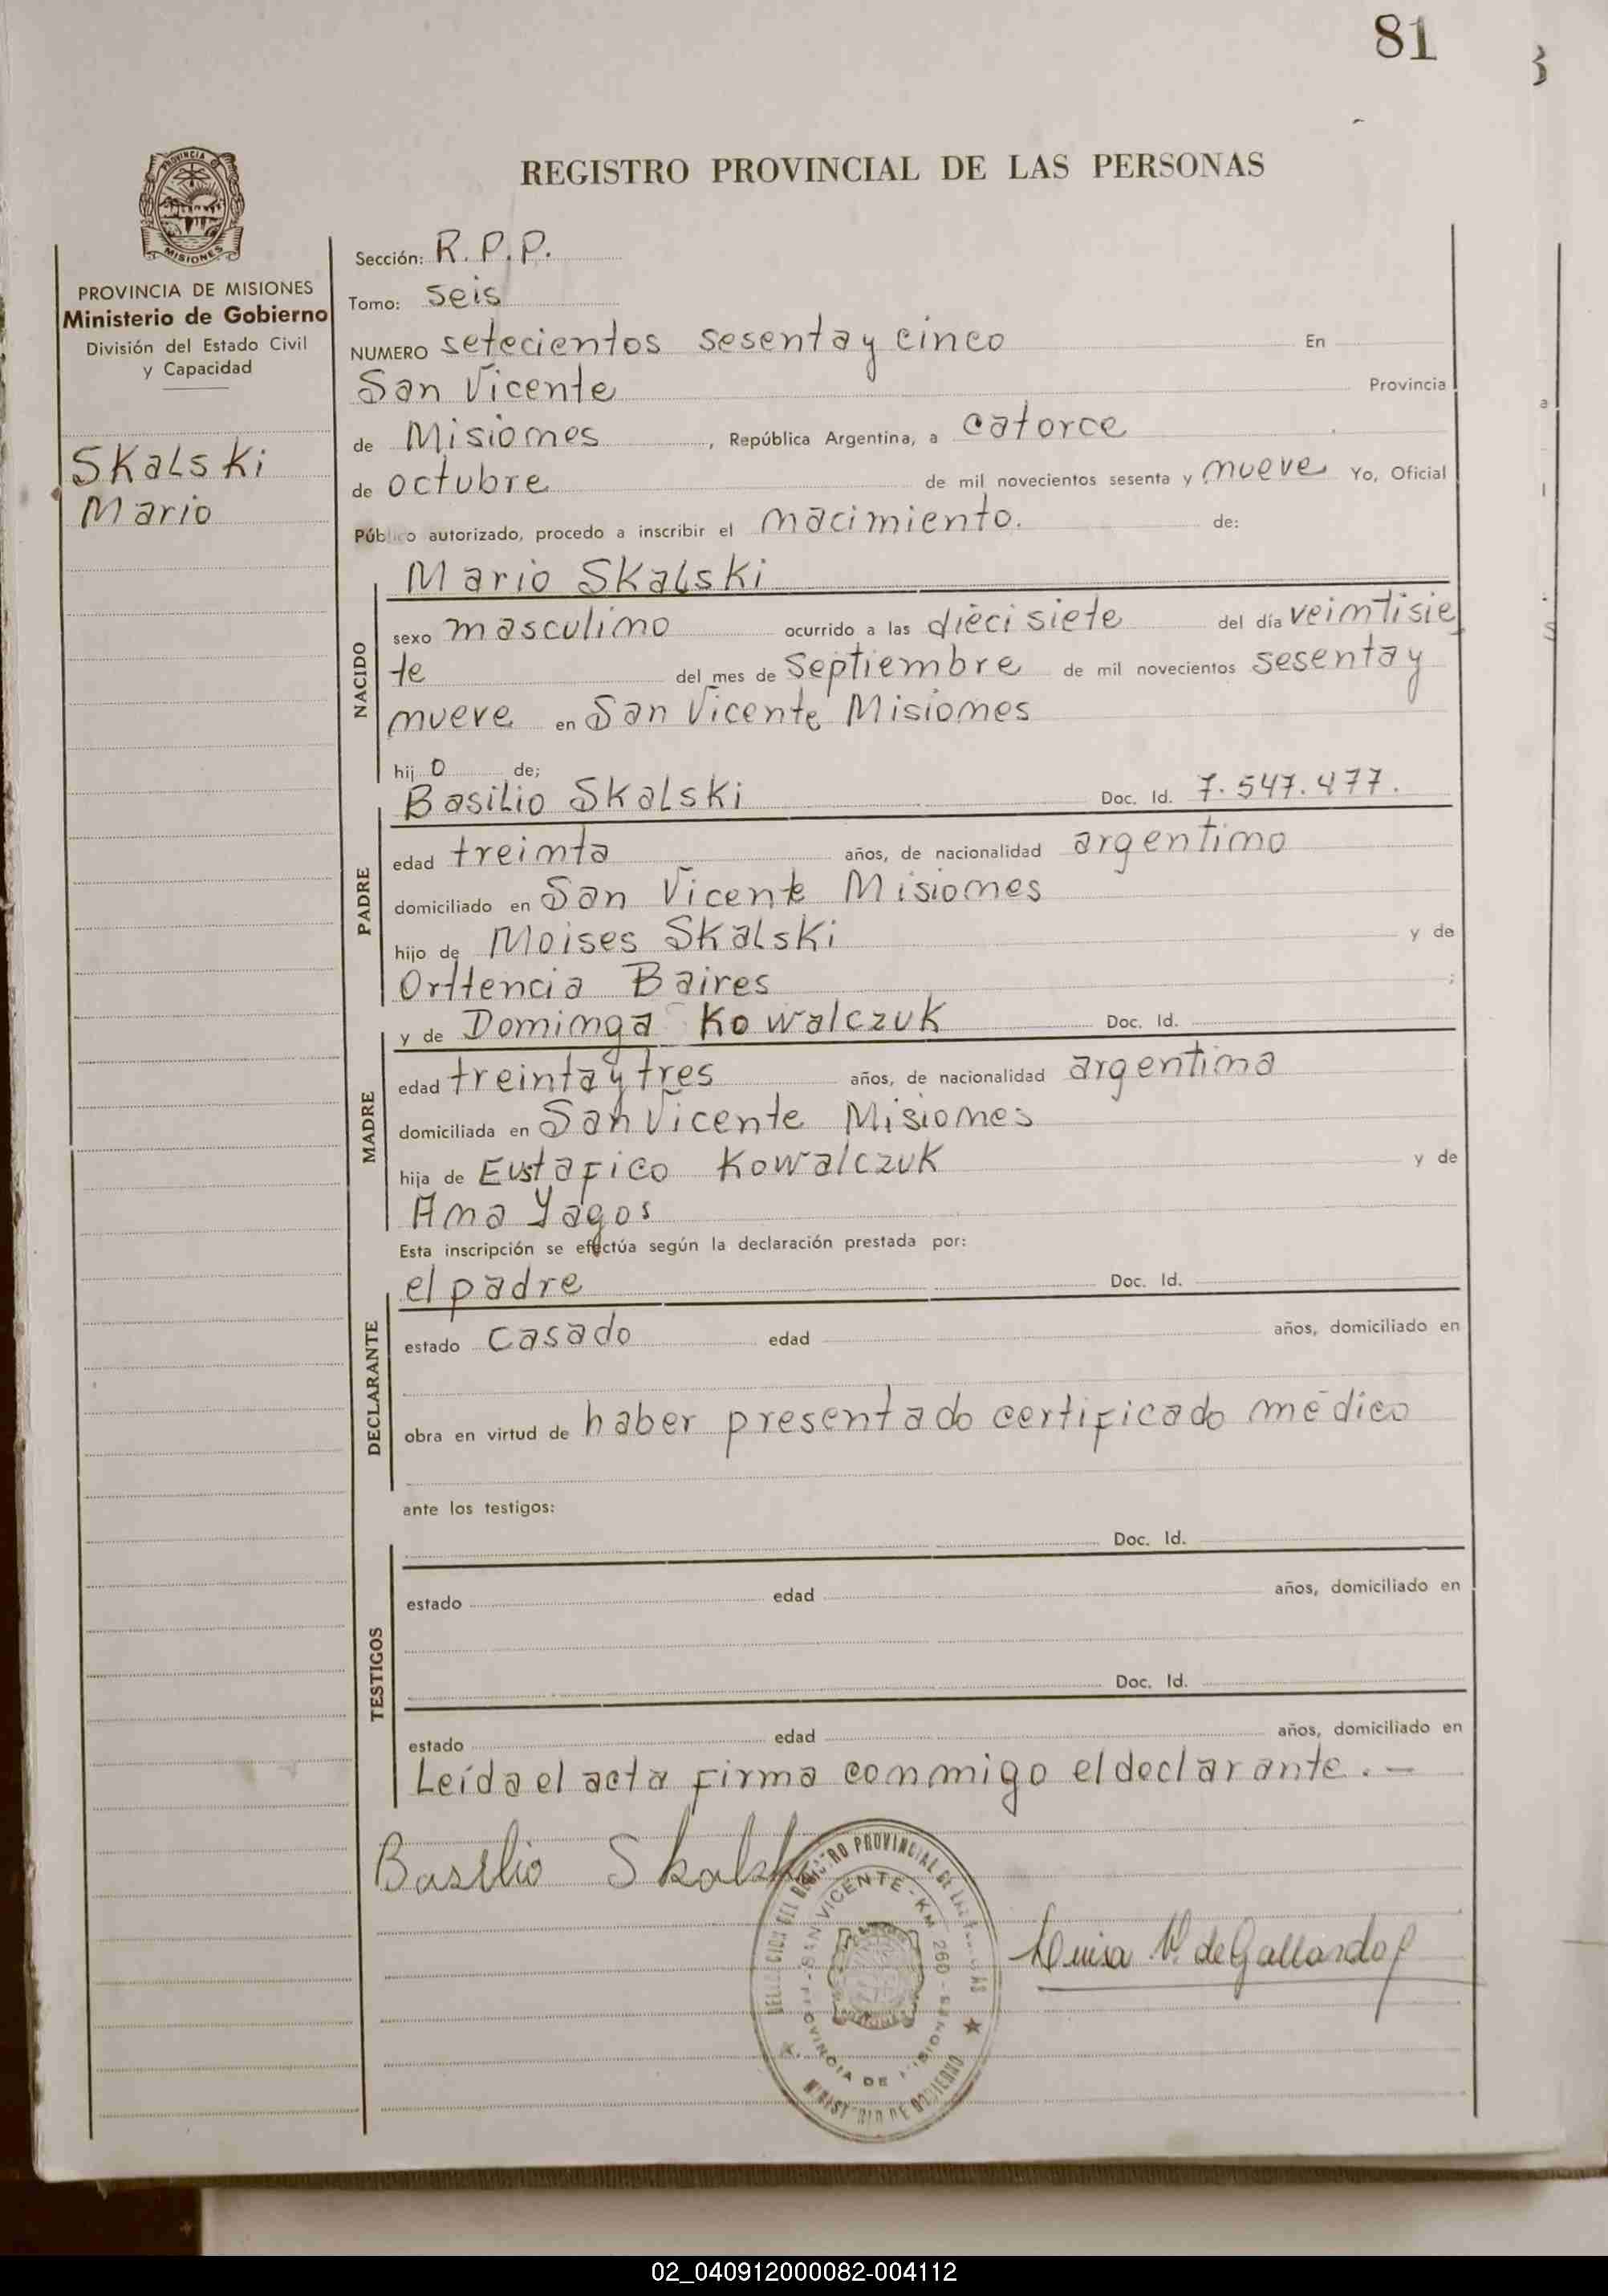 81
REGISTRO PROVINCIAL DE LAS PERSONAS
PROVINCIA DE MISIONES
Ministerio de Gobierno
División del Estado Civil
y Capacidad
Skalski
Mario
Sección: R.P.P.
Tomo: seis
NUMERO setecientos sesenta y cinco En
San Vicente Provincia
de Misiones, República Argentina, a catorce
de octubre de mil novecientos sesenta y nueve Yo, Oficial
Público autorizado, procedo a inscribir el nacimiento. de:
NACIDO
Mario Skalski
sexo masculino ocurrido a las diecisiete del día veintisie
te del mes de septiembre de mil novecientos sesenta y
nueve en San Vicente Misiones
hijo de;
PADRE
Basilio Skalski Doc. Id. 7.547.477.
edad treinta años, de nacionalidad argentino
domiciliado en San Vicente Misiones
hijo de Moises Skalski y de
Orttencia Baires ;
MADRE
y de Dominga Kowalczuk Doc. Id.
edad treinta y tres años, de nacionalidad argentina
domiciliada en San Vicente Misiones
hija de Eustafico Kowalczuk y de
Ana Yagos
Esta inscripción se efectúa según la declaración prestada por:
DECLARANTE
el padre Doc. Id.
estado casado edad años, domiciliado en
obra en virtud de haber presentado certificado médico
ante los testigos:
TESTIGOS
Doc. Id.
estado edad años, domiciliado en
Doc. Id.
estado edad años, domiciliado en
Leída el acta firma conmigo el declarante.-
Basilio Skalski
DELEGACION DEL REGISTRO PROVINCIAL DE LAS PERSONAS
SAN VICENTE - KM 260 - MISIONES
PROVINCIA DE MISIONES
MINISTERIO DE GOBIERNO
Luisa V. de Gallardo
02_040912000082-004112